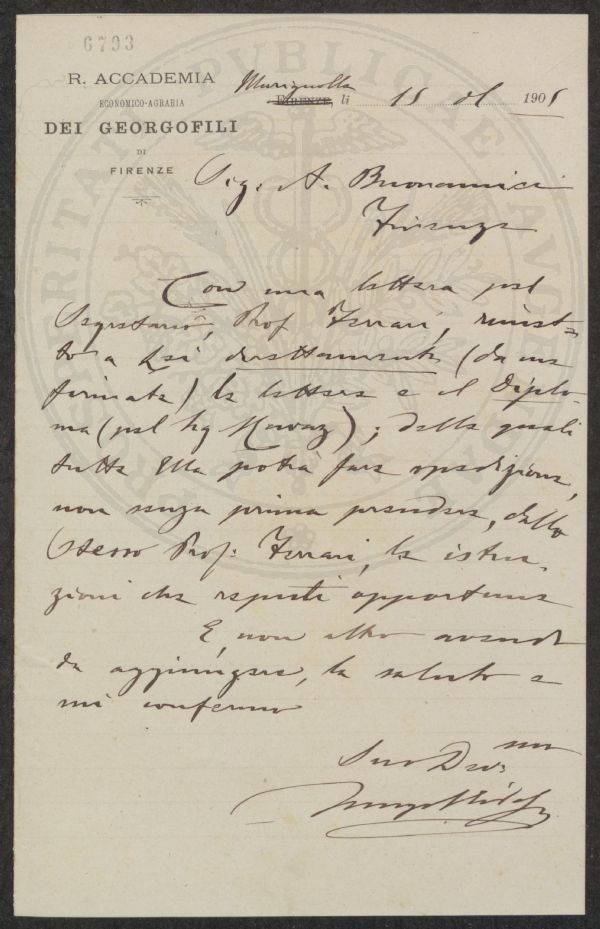 6793
R. ACCADEMIA
ECONOMICO-AGRARIA
DEI GEORGOFILI
DI
FIRENZE
Marignolla
FIRENZE, li 15 1905
PROSPERITATI PUBLICAE AVGENDAE
Sig. A. Buonamici
Firenze
Con una lettera pel
Segretario, Prof Ferrari, rimet=
to a Lei direttamente (da me
firmate) le lettere e il Diplo-
ma (pel Sig ); delle quali
tutte Ella potrà fare spedizione,
non senza prima prendere, dallo
stesso Prof: Ferrari, le istru-
zioni che reputi opportune
E non altro avendo
da aggiungere, la saluto e
mi confermo
Suo Dev:mo